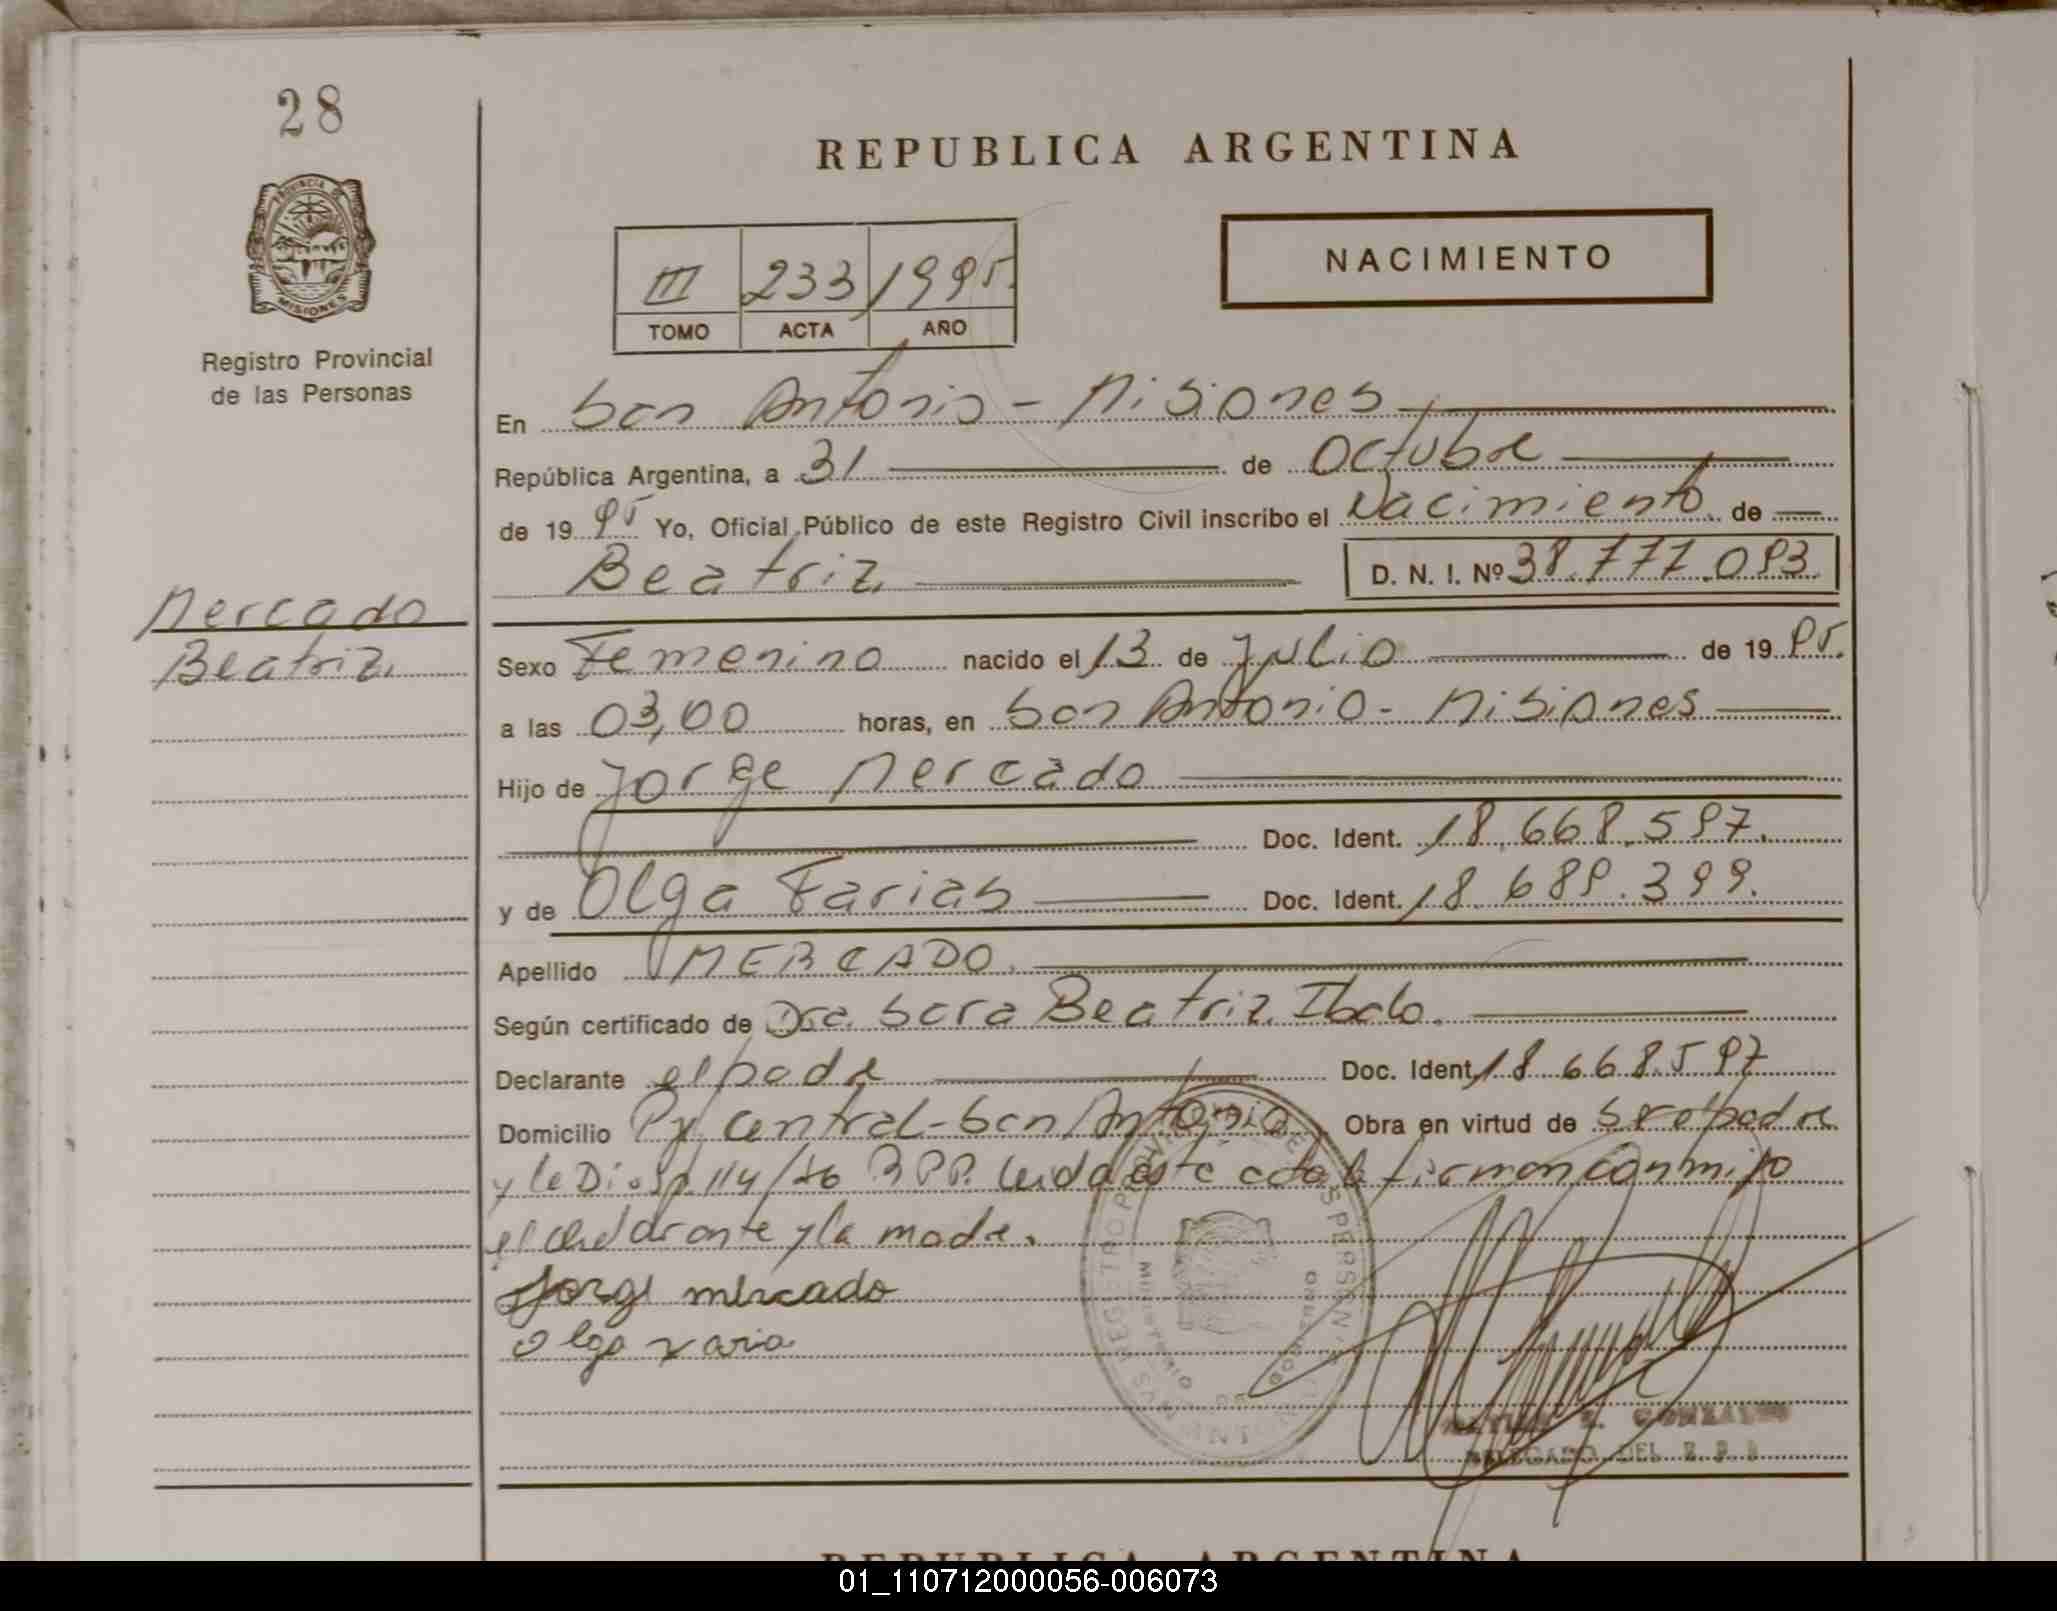 28
REPUBLICA ARGENTINA
NACIMIENTO
III 233 1995
TOMO ACTA AÑO
PROVINCIA DE
MISIONES
Registro Provincial
de las Personas
En San Antonio - Misiones
República Argentina, a 31 de Octubre
de 19 95 Yo, Oficial Público de este Registro Civil inscribo el Nacimiento de
Beatriz D. N. I. Nº 38.777.093
Mercado
Beatriz
Sexo Femenino nacido el 13 de Julio de 19 95.
a las 03,00 horas, en San Antonio - Misiones
Hijo de Jorge Mercado
Doc. Ident. 18.668.597.
y de Olga Farias Doc. Ident. 18.689.399.
Apellido MERCADO.
Según certificado de Dra. Sara Beatriz Ibalo.
Declarante el padre Doc. Ident. 18.668.597
Domicilio Pje central - San Antonio Obra en virtud de ser el padre
y la Disp. 114/86 R.P.P. Leida este acta la firman conmigo
el declarante y la madre.
Jorge mercado
olga varia
GONZALEZ
DELEGADO DEL R.P.P
REPUBLICA ARGENTINA
01_110712000056-006073